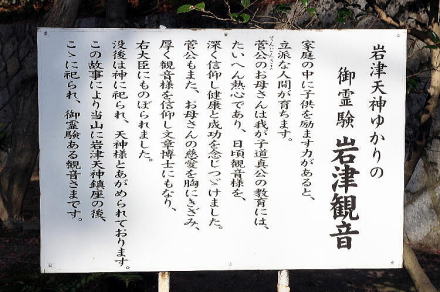 岩津天神ゆかりの
御霊験 岩津観音
家庭の中に子供を励ます力があると、
立派な人間が育ちます。
菅公のお母さんは我が子道真公の教育には、
たいへん熱心であり、日頃観音様を、
深く信仰し健康と成功を念じつゞけました。
菅公もまた、お母さんの慈愛を胸にきざみ、
厚く観音様を信仰し文章博士にもなり、
右大臣にものぼられました。
没後は神に祀られ、天神様とあがめられております。
この故事により当山に岩津天神鎮座の後、
こゝに祀られ、御霊験ある観音さまです。